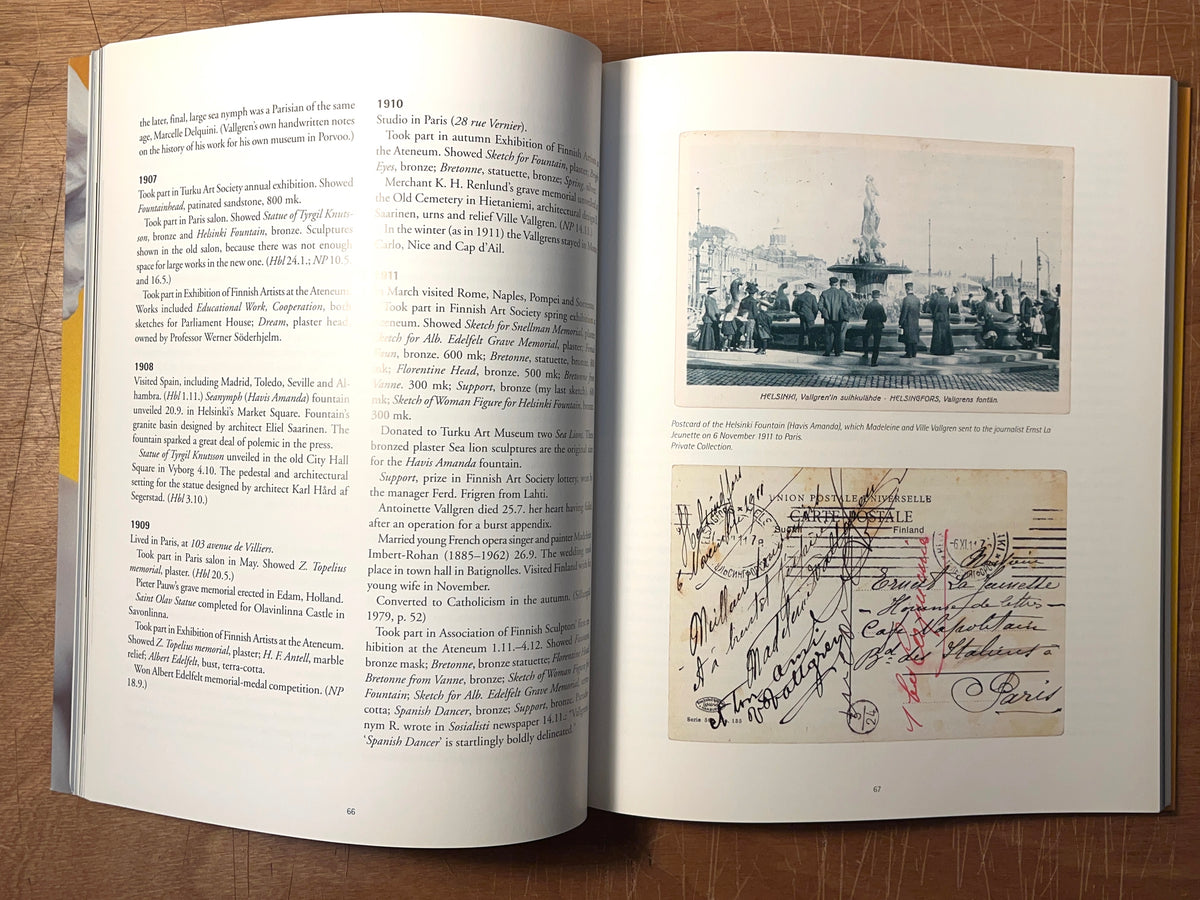 the later, final, large sea nymph was a Parisian of the same
age, Marcelle Delquini. (Vallgren's own handwritten notes
on the history of his work for his own museum in Porvoo.)
1907
Took part in Turku Art Society annual exhibition. Showed
Fountainhead, patinated sandstone, 800 mk.
Took part in Paris salon. Showed Statue of Tyrgil Knuts-
son, bronze and Helsinki Fountain, bronze. Sculptures
shown in the old salon, because there was not enough
space for large works in the new one. (Hbl 24.1.; NP 10.5.
and 16.5.)
Took part in Exhibition of Finnish Artists at the Ateneum.
Works included Educational Work, Cooperation, both
sketches for Parliament House; Dream, plaster head,
owned by Professor Werner Söderhjelm.
1908
Visited Spain, including Madrid, Toledo, Seville and Al-
hambra. (Hbl 1.11.) Seanymph (Havis Amanda) fountain
unveiled 20.9. in Helsinki's Market Square. Fountain's
granite basin designed by architect Eliel Saarinen. The
fountain sparked a great deal of polemic in the press.
Statue of Tyrgil Knutsson unveiled in the old City Hall
Square in Vyborg 4.10. The pedestal and architectural
setting for the statue designed by architect Karl Hård af
Segerstad. (Hbl 3.10.)
1909
Lived in Paris, at 103 avenue de Villiers.
Took part in Paris salon in May. Showed Z. Topelius
memorial, plaster. (Hbl 20.5.)
Pieter Pauw's grave memorial erected in Edam, Holland.
Saint Olav Statue completed for Olavinlinna Castle in
Savonlinna.
Took part in Exhibition of Finnish Artists at the Ateneum.
Showed Z. Topelius memorial, plaster; H. F. Antell, marble
relief; Albert Edelfelt, bust, terra-cotta.
Won Albert Edelfelt memorial-medal competition. (NP
18.9.)
66
1910
Studio in Paris (28 rue Vernier).
Took part in autumn Exhibition of Finnish Artists
the Ateneum. Showed Sketch for Fountain, plaster;
Eyes, bronze; Bretonne, statuette, bronze; Spring,
Merchant K. H. Renlund's grave memorial
the Old Cemetery in Hietaniemi, architectural design
Saarinen, urns and relief Ville Vallgren. (NP 14.11.)
In the winter (as in 1911) the Vallgrens stayed in
Carlo, Nice and Cap d'Ail.
1911
In March visited Rome, Naples, Pompei and Sorrento.
Took part in Finnish Art Society spring exhibition
Ateneum. Showed Sketch for Snellman Memorial,
Sketch for Alb. Edelfelt Grave Memorial, plaster;
Faun, bronze. 600 mk; Bretonne, statuette, bronze.
mk; Florentine Head, bronze. 500 mk; Bretonne from
Vanne. 300 mk; Support, bronze (my last sketch)
mk; Sketch of Woman Figure for Helsinki Fountain,
300 mk.
Donated to Turku Art Museum two Sea Lions.
bronzed plaster Sea lion sculptures are the original
for the Havis Amanda fountain.
Support, prize in Finnish Art Society lottery,
the manager Ferd. Frigren from Lahti.
Antoinette Vallgren died 25.7. her heart having
after an operation for a burst appendix.
Married young French opera singer and painter Madeleine
Imbert-Rohan (1885–1962) 26.9. The wedding
place in town hall in Batignolles. Visited Finland with
young wife in November.
Converted to Catholicism in the autumn.
1979, p. 52)
Took part in Association of Finnish Sculptors'
hibition at the Ateneum 1.11.–4.12. Showed
bronze mask; Bretonne, bronze statuette; Florentine
Bretonne from Vanne, bronze; Sketch of Woman Figure
Fountain; Sketch for Alb. Edelfelt Grave Memorial,
cotta; Spanish Dancer, bronze; Support, bronze.
nym R. wrote in Sosialisti newspaper 14.11.:
'Spanish Dancer' is startlingly boldly delineated.
HELSINKI, Vallgren'in suihkulähde - HELSINGFORS, Vallgrens fontän.
Postcard of the Helsinki Fountain (Havis Amanda), which Madeleine and Ville Vallgren sent to the journalist Ernst La
Jeunette on 6 November 1911 to Paris.
Private Collection.
UNION POSTALE UNIVERSELLE
CARTE POSTALE
Suomi Finland
Helsingfors
6 1911
Meilleurs
A bientôt
Madeleine Vallgren
ton ami
V Vallgren
-6 XI 11 7
Monsieur
Ernest La Jeunette
- Homme de lettres -
Café Napolitain
Bd. des Italiens à
Paris
5
24
67